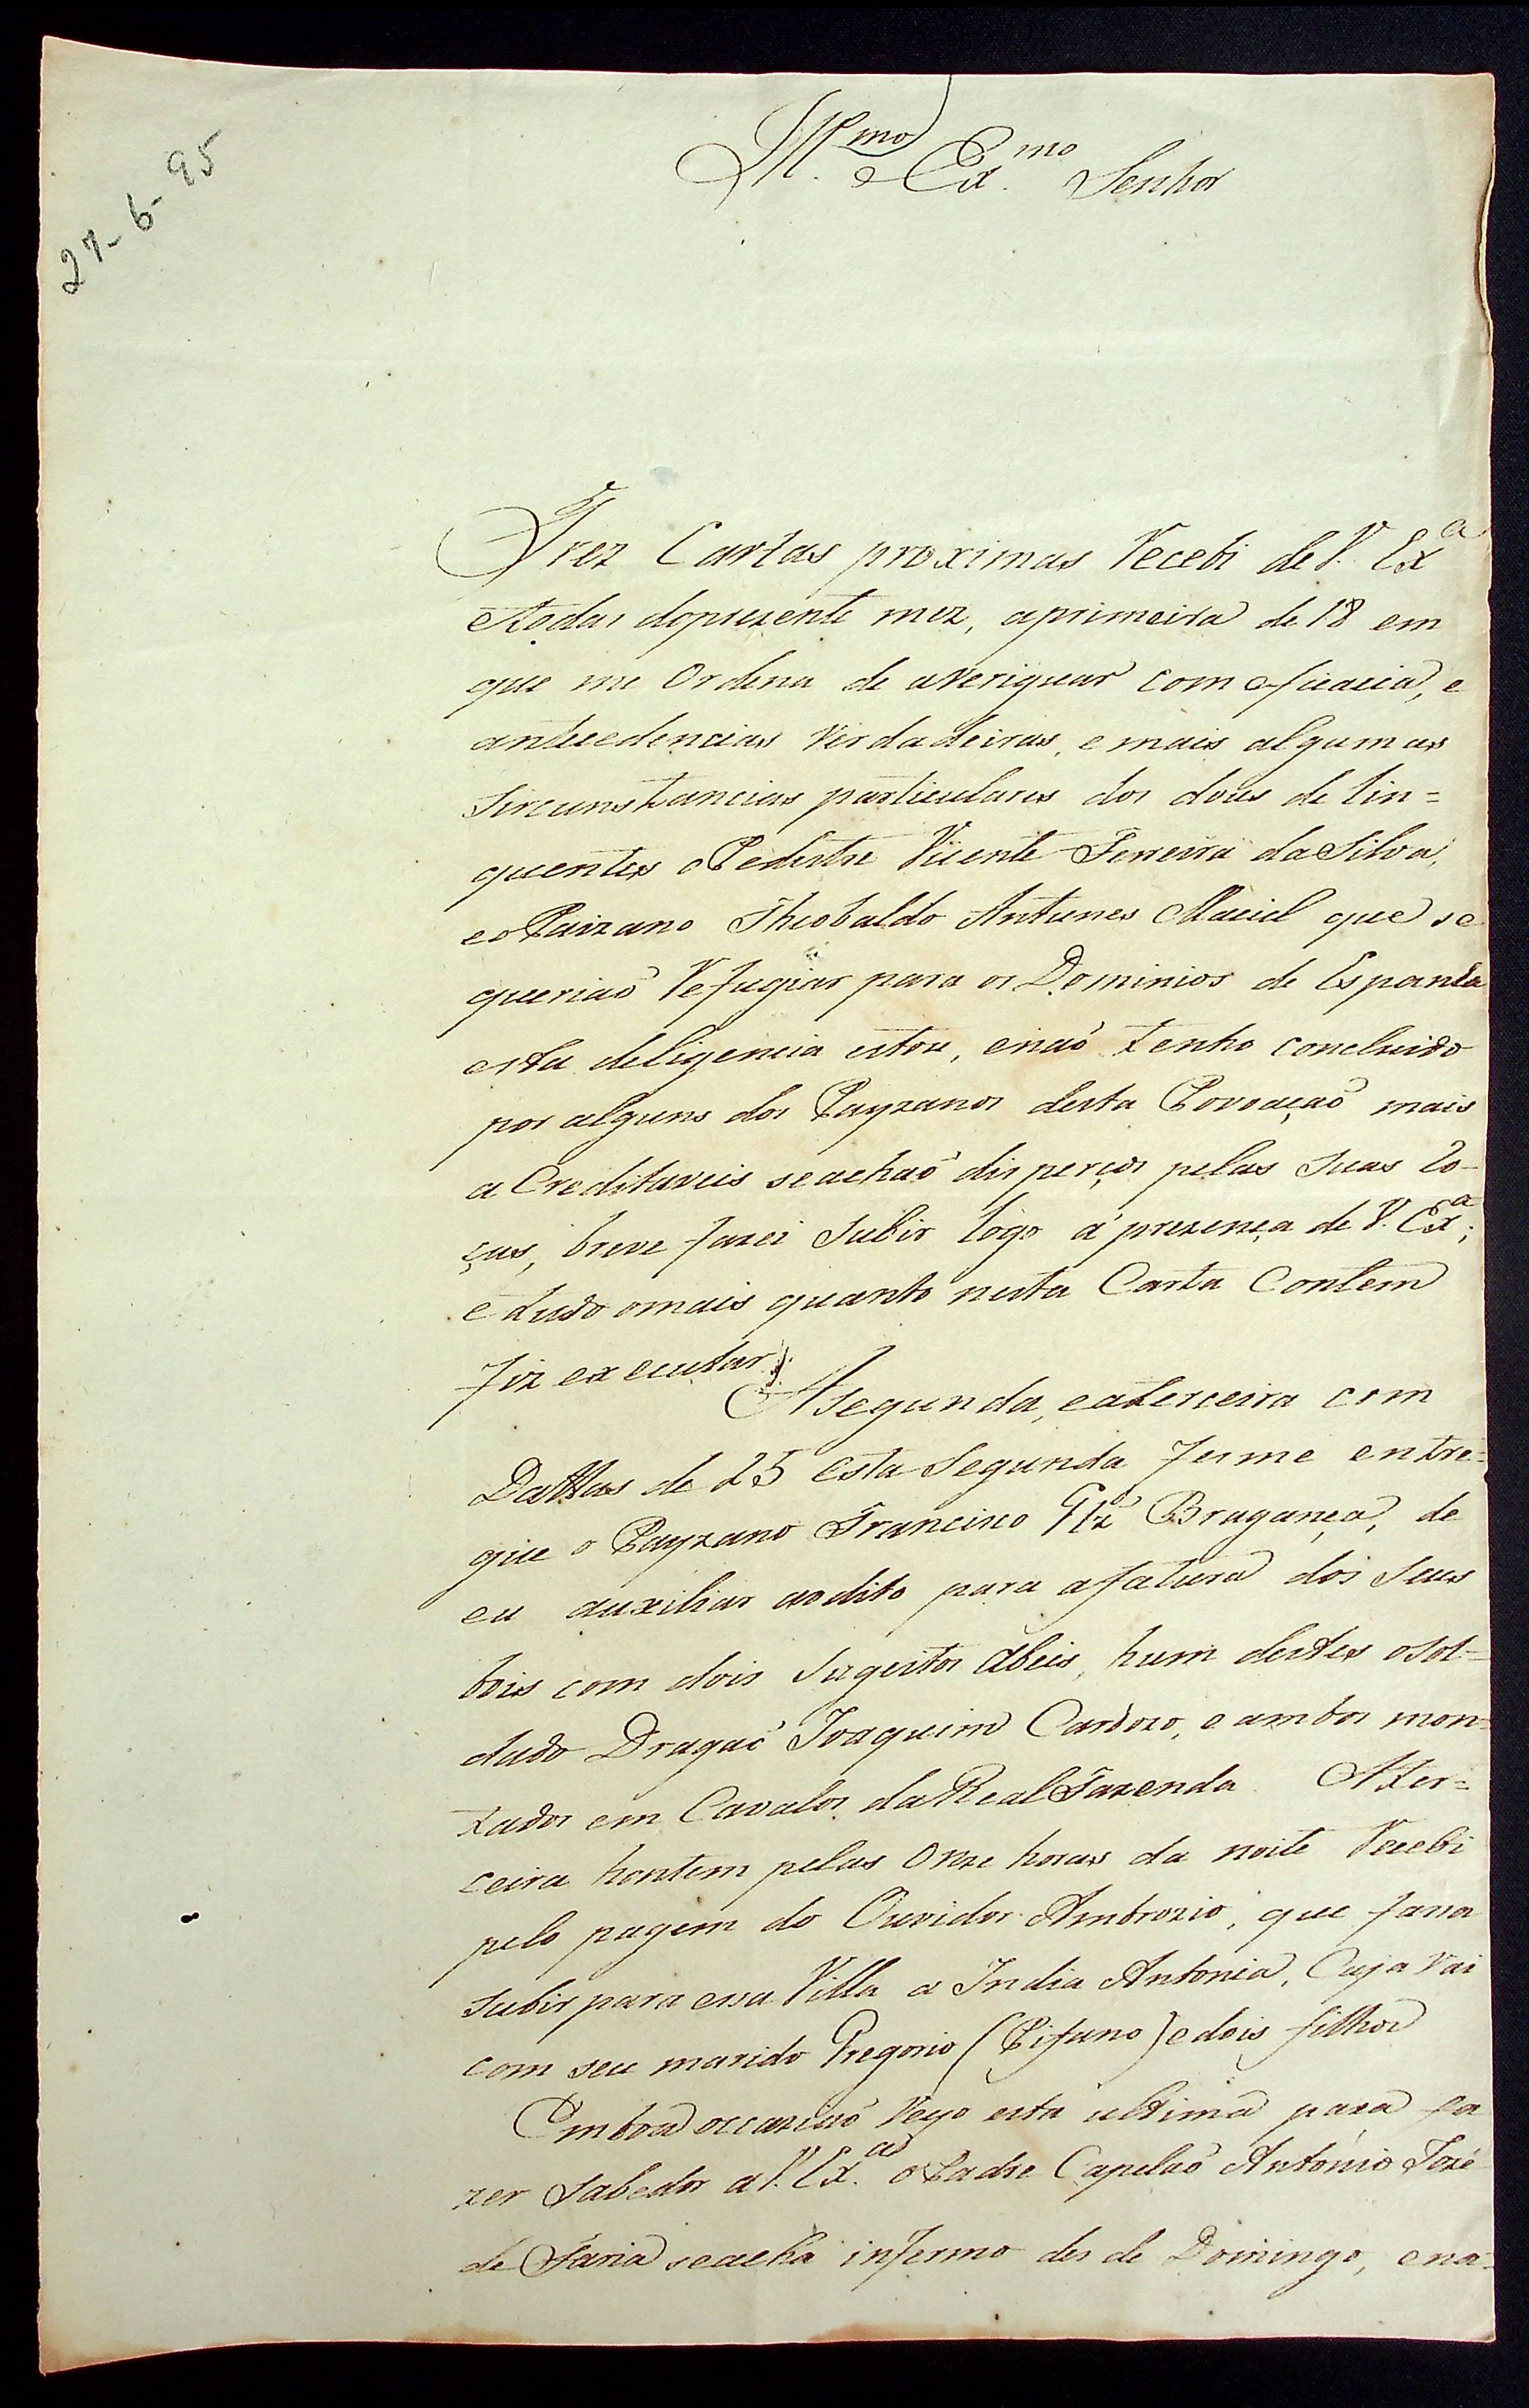 27-6-95
Ill.mo e Ex.mo Senhor
Trez Cartas proximas Recebi de V. Exa
etodas doprezente mez, aprimeira de 18 em
que me Ordena de averiguar com eficacia, e
antecedencias Verdadeiras, e mais algumas
Sircunstancias particulares dos dous delin=
quentes o Pedestre Vicente Ferreira da Silva,
eo Paizano Theobaldo Antunes Maciel que se
queriaõ Refugiar para os Dominios de Espanha
esta deligencia estou, enaõ tenho concluido
por alguns dos Payzanos desta Povoaçaõ mais
aCreditaveis seachaõ disperços pelas suas Ro-
ças, breve farei subir logo á prezença de V. Exa;
e tudo omais quanto nesta Carta Contem
fiz executar.
A segunda, eaterceira com
Dattas de 25 esta Segunda fesme entre=
gue o Payzano Francisco Glz Bragança, de
eu auxiliar aodito para afatura dos seus
bois com dois Sugeitos abeis, hum destes osol=
dado Dragaõ Joaquim Cardozo, e ambos mon=
tados em Cavalos da Real Fazenda. A ter=
ceira hontem pelas Onze horas da noite Recebi
pelo pagem do Ouvidor Ambrozio, que fassa
subir para essa Villa a India Antonia, Cuja vai
com seu marido Gregorio (Pifano) e dois filhos
Emboa occaziaõ Vejo esta ultima para fa
zer Sabedor a V. Ex.a o Padre Capelaõ António Jozé
de Faria seacha infermo des de Domingo, ena=